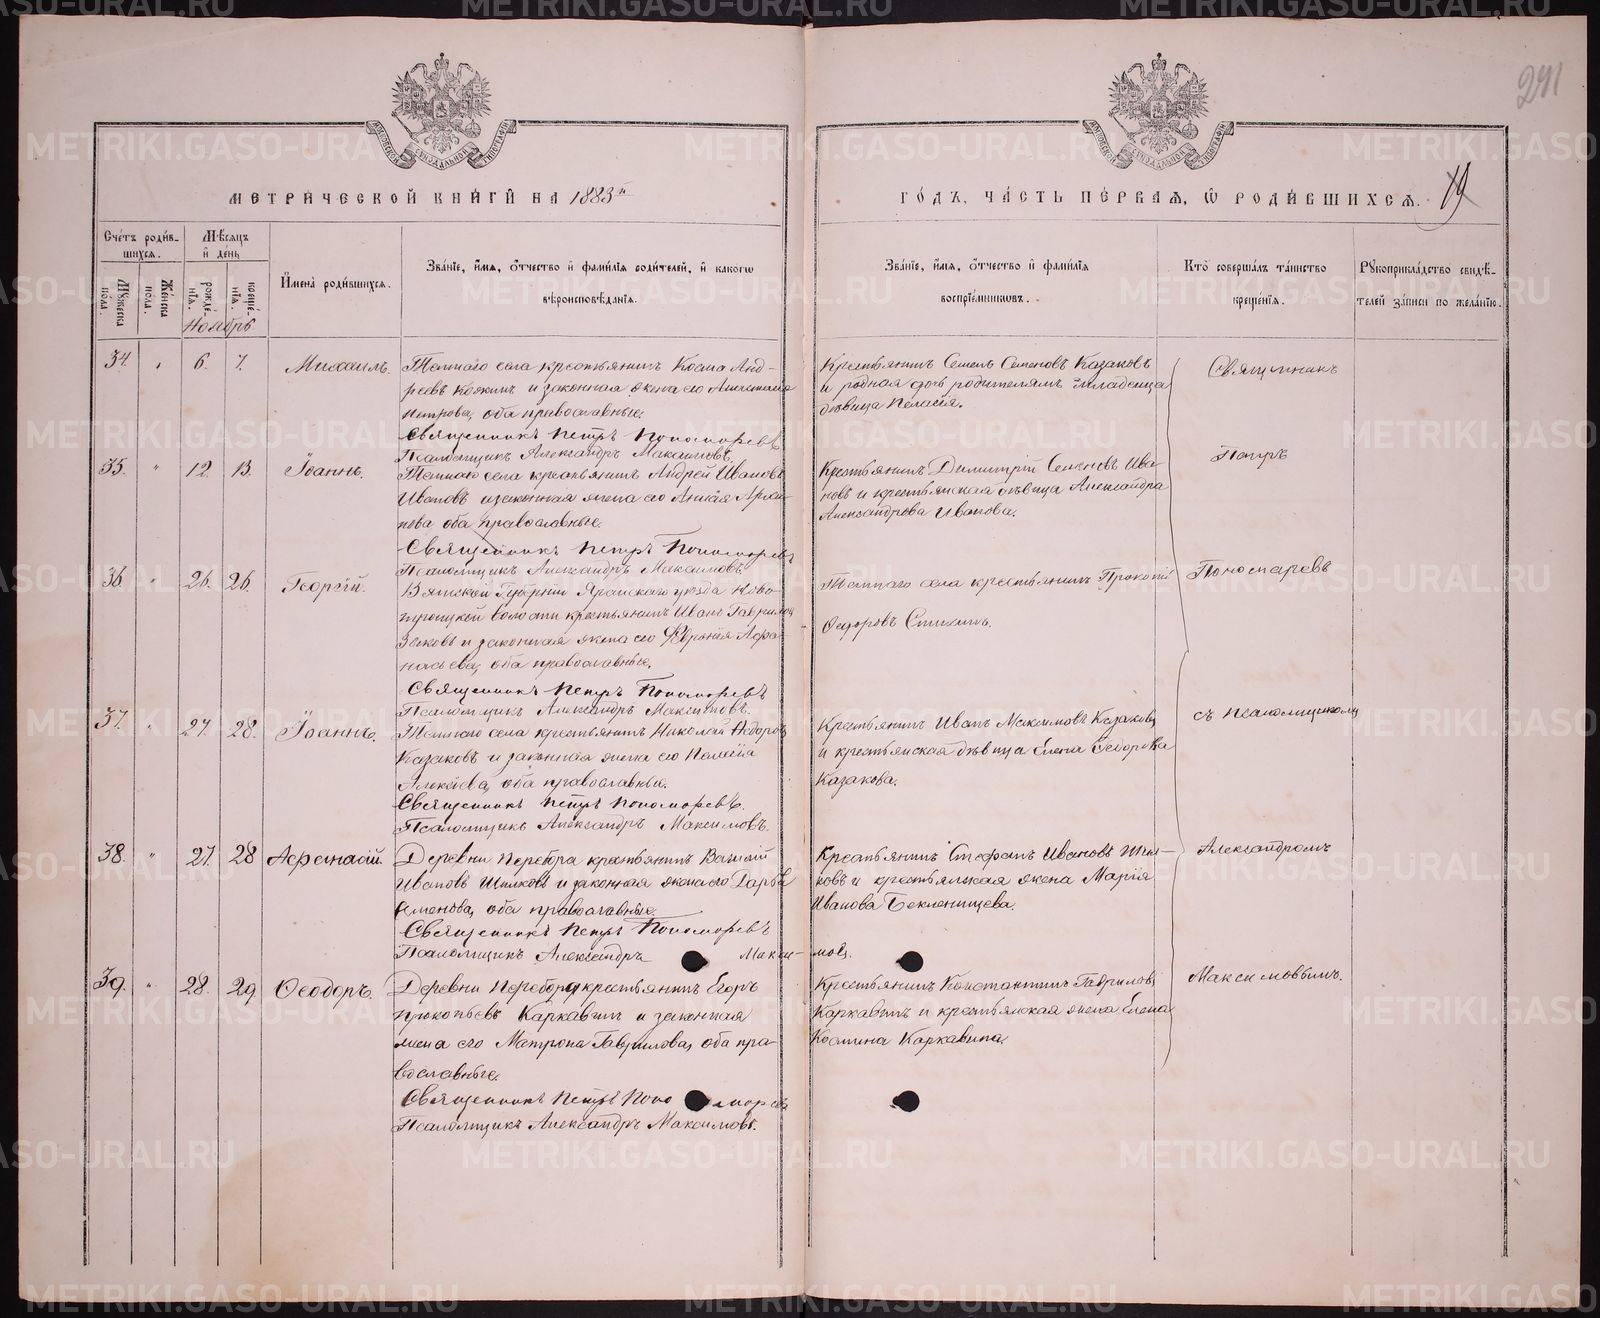 241
МЕТРИЧЕСКОЙ КНИГИ НА 1883й
ГОДЪ, ЧАСТЬ ПЕРВАЯ, Ѡ РОДИВШИХСЯ.
19
Счетъ родив-
шихся.
Мужеска
пола.
Женска
пола.
Мѣсяцъ
и день
рожде-
нія.
креще-
нія.
Ноябрь
Имена родившихся.
Званіе, имя, отчество и фамилія родителей, и какого
вѣроисповѣданія.
Званіе, имя, отчество и фамилія
воспріемниковъ.
Кто совершалъ таинство
крещенія.
Рукоприкладство свидѣ-
телей записи по желанію.
34. " 6. 7. Михаилъ.
крестьянинъ Косма Анд-
реевъ и законная жена его Анастасія
Петрова, оба православные.
Священникъ Петръ Пономаревъ
Псаломщикъ Александръ Максимовъ.
Крестьянинъ Семенъ Семеновъ Казаковъ
и родная дочь родителямъ младенца
дѣвица Пелагія.
35. " 12. 13. Іоаннъ.
села крестьянинъ Андрей Ивановъ
Ивановъ и законная жена его
оба православные.
Священникъ Петръ Пономаревъ
Псаломщикъ Александръ Максимовъ.
Крестьянинъ Димитрій Семеновъ Ива-
новъ и крестьянская дѣвица Александра
Александрова Иванова.
36. " 26. 26. Георгій.
Вятской Губерніи Яранскаго уѣзда
волости крестьянинъ Иванъ Гавриловъ
и законная жена его Афа-
насьева, оба православные.
Священникъ Петръ Пономаревъ
Псаломщикъ Александръ Максимовъ.
села крестьянинъ Прокопій
Ѳедоровъ
37. " 27. 28. Іоаннъ.
села крестьянинъ Николай Ѳедоровъ
Казаковъ и законная жена его Пелагія
Алексіева, оба православные.
Священникъ Петръ Пономаревъ.
Псаломщикъ Александръ Максимовъ.
Крестьянинъ Иванъ Максимовъ Казаковъ
и крестьянская дѣвица Елена Ѳедорова
Казакова.
38. " 27. 28 Аѳанасій.
ДеревниПеребора крестьянинъ Василій
Ивановъ и законная жена его Дарья
Семенова, оба православные.
Священникъ Петръ Пономаревъ
Псаломщикъ Александръ Макси- мовъ.
Крестьянинъ Стефанъ Ивановъ
и крестьянская жена Марія
Иванова Бекленищева.
39. " 28. 29 Ѳеодоръ.
Деревни Перебора крестьянинъ Егоръ
Прокопьевъ Каркавинъ и законная
жена его Матрона Гаврилова, оба пра-
вославные.
Священникъ Петръ Пономаревъ
Псаломщикъ Александръ Максимовъ.
Крестьянинъ Константинъ Гавриловъ
Каркавинъ и крестьянская жена Елена
Космина Каркавина.
Священникъ
Петръ
Пономаревъ
съ псаломщикомъ
Александромъ
Максимовымъ.
METRIKI.GASO-URAL.RU